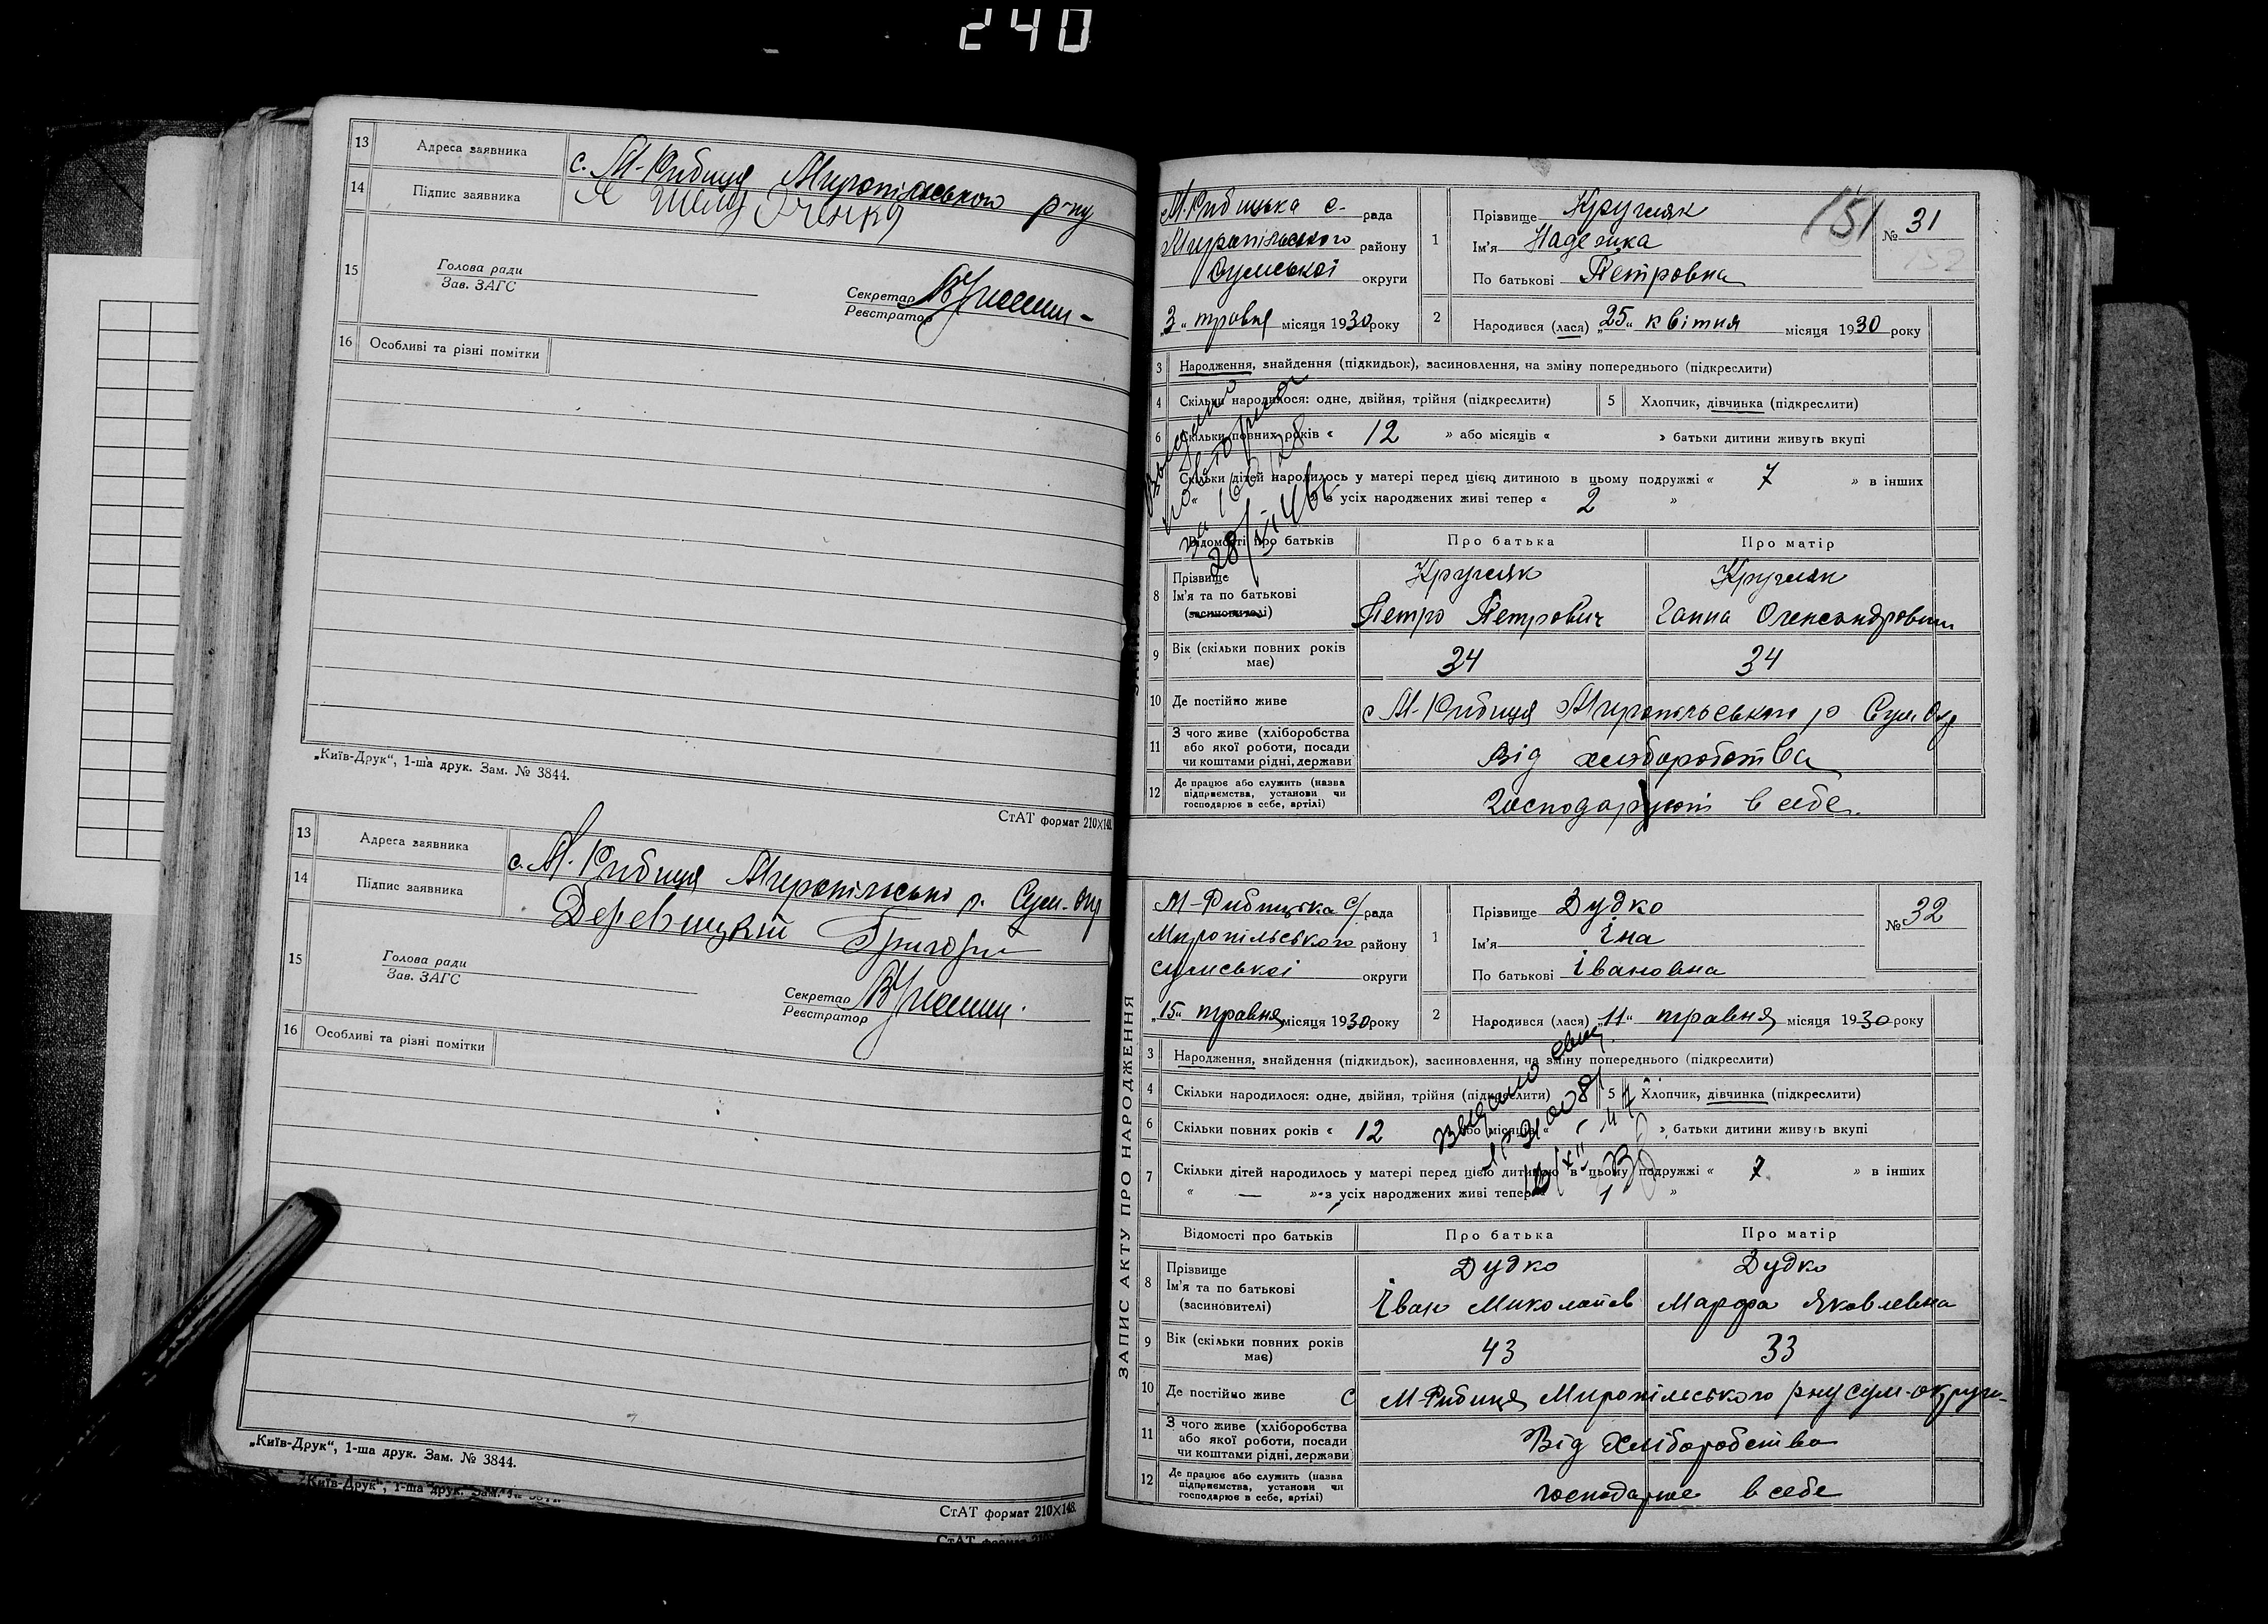 240
13 Адреса заявника с. М-Рибиця Миропільського р-ну
14 Підпис заявника
15 Голова ради
Зав. ЗАГС
Секретар
Реєстратор
16 Особливі та різні помітки
„Київ-Друк“, 1-ша друк. Зам. № 3844.
СтАТ формат 210×148.
13 Адреса заявника с. М. Рибиця Миропільсько р. Сум. окр
14 Підпис заявника Деревицкій Григорій
15 Голова ради
Зав. ЗАГС
Секретар
Реєстратор
16 Особливі та різні помітки
„Київ-Друк“, 1-ша друк. Зам. № 3844.
СтАТ формат 210×148.
„Київ-Друк“, 1-ша друк.
М. Рибицька с. рада
Миропільського району
Сумської округи
„3“ травня місяця 1930 року
1 Прізвище Кругляк
Ім'я Надежка
По батькові Петровна
151
№ 31
152
2 Народився (лася) „25“ квітня місяця 1930 року
3 Народження, знайдення (підкидьок), засиновлення, на зміну попереднього (підкреслити)
4 Скільки народилося: одне, двійня, трійня (підкреслити) 5 Хлопчик, дівчинка (підкреслити)
6 Скільки повних років « 12 » або місяців « » батьки дитини живуть вкупі
Скільки дітей народилось у матері перед цією дитиною в цьому подружжі « 7 » в інших
« » з усіх народжених живі тепер « 2 »
Відомості про батьків Про батька Про матір
8 Прізвище Ім'я та по батькові (засиновителі)
Кругляк Кругляк
Петро Петрович Ганна Олександровна
9 Вік (скільки повних років має) 34 34
10 Де постійно живе с М-Рибиця Миропільського р Сум. Окр
11 З чого живе (хліборобства або якої роботи, посади чи коштами рідні, держави Від хліборобства
12 Де працює або служить (назва підприємства, установи чи господарює в себе, артілі) Господарюют в себе
ЗАПИС АКТУ ПРО НАРОДЖЕННЯ
М-Рибицька с/рада
Миропільського району
сумської округи
„15“ травня місяця 1930 року
1 Прізвище Дудко
Ім'я Іна
По батькові Івановна
№ 32
2 Народився (лася) „11“ травня місяця 1930 року
3 Народження, знайдення (підкидьок), засиновлення, на зміну попереднього (підкреслити)
4 Скільки народилося: одне, двійня, трійня (підкреслити) 5 Хлопчик, дівчинка (підкреслити)
6 Скільки повних років « 12 або місяців « » батьки дитини живуть вкупі
7 Скільки дітей народилось у матері перед цією дитиною в цьому подружжі « 7 » в інших
« — » з усіх народжених живі тепер « 1 »
Відомості про батьків Про батька Про матір
8 Прізвище Ім'я та по батькові (засиновителі)
Дудко Дудко
Іван Миколаїв Марфа Яковлевна
9 Вік (скільки повних років має) 43 33
10 Де постійно живе с М-Рибиця Миропільського рну сум-округи
11 З чого живе (хліборобства або якої роботи, посади чи коштами рідні, держави Від хліборобства
12 Де працює або служить (назва підприємства, установи чи господарює в себе, артілі) господарює в себе